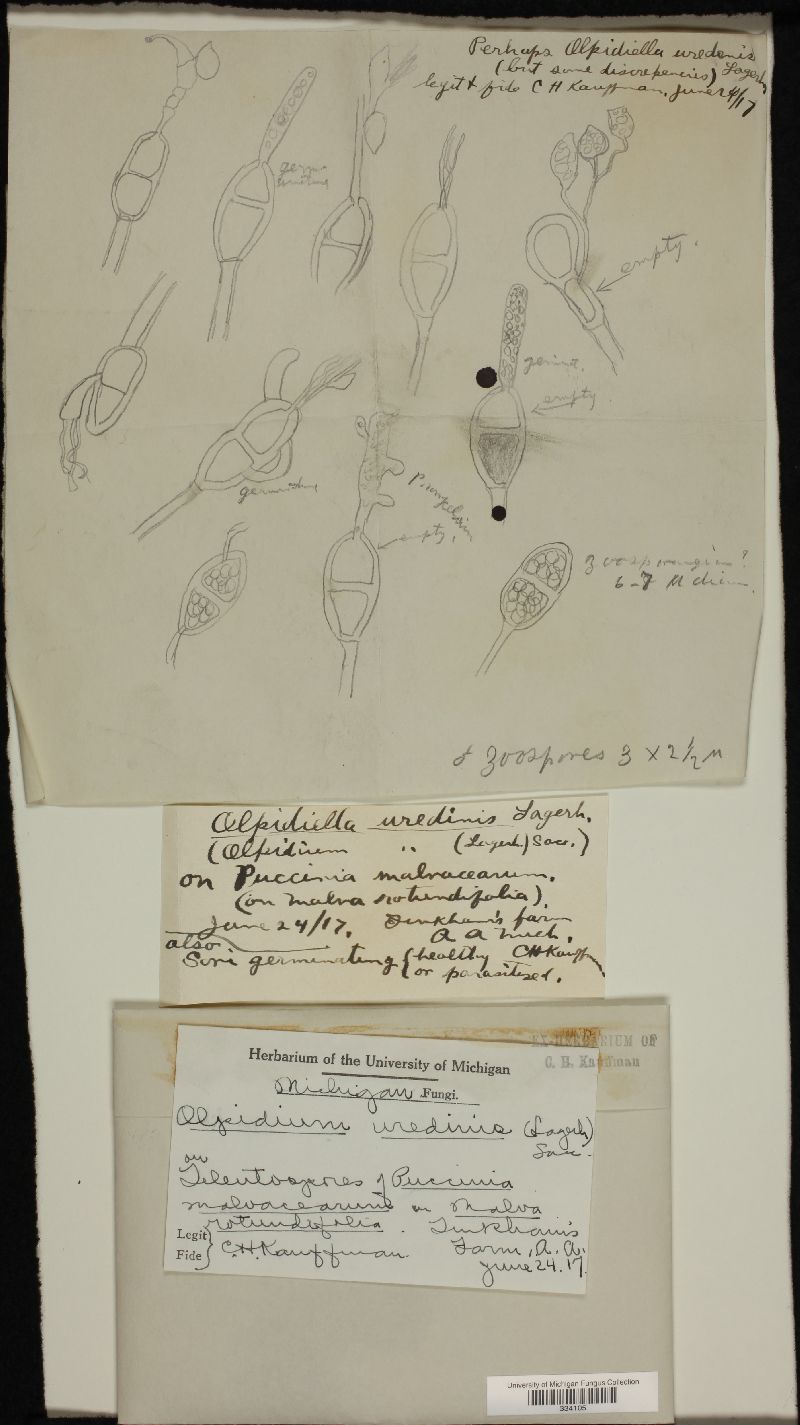 Perhaps Olpidiella uredinis
(but some discrepencies) Lagerh.
legit & fide C H Kauffman, June 24/17
germinating
empty.
germinat.
empty
germinating
empty.
zoosporangium?
6-7 µ diam.
zoospores 3 × 2 1/2 µ
Olpidiella uredinis Lagerh.
(Olpidium " (Lagerh) Sacc.)
on Puccinia malvacearum.
(on Malva rotundifolia).
June 24/17. Tinkham's farm
A A Mich.
also
Sori germinating { healthy CH Kauffman
or parasitized.
EX-HERBARIUM OF
C. H. Kauffman
Herbarium of the University of Michigan
Michigan Fungi.
Olpidium uredinis (Lagerh)
Sacc.
on
Teleutospores of Puccinia
malvacearum on Malva
rotundifolia. Tinkham's
Legit } C.H. Kauffman. Farm, A. A.
Fide June 24. 17
University of Michigan Fungus Collection
334105